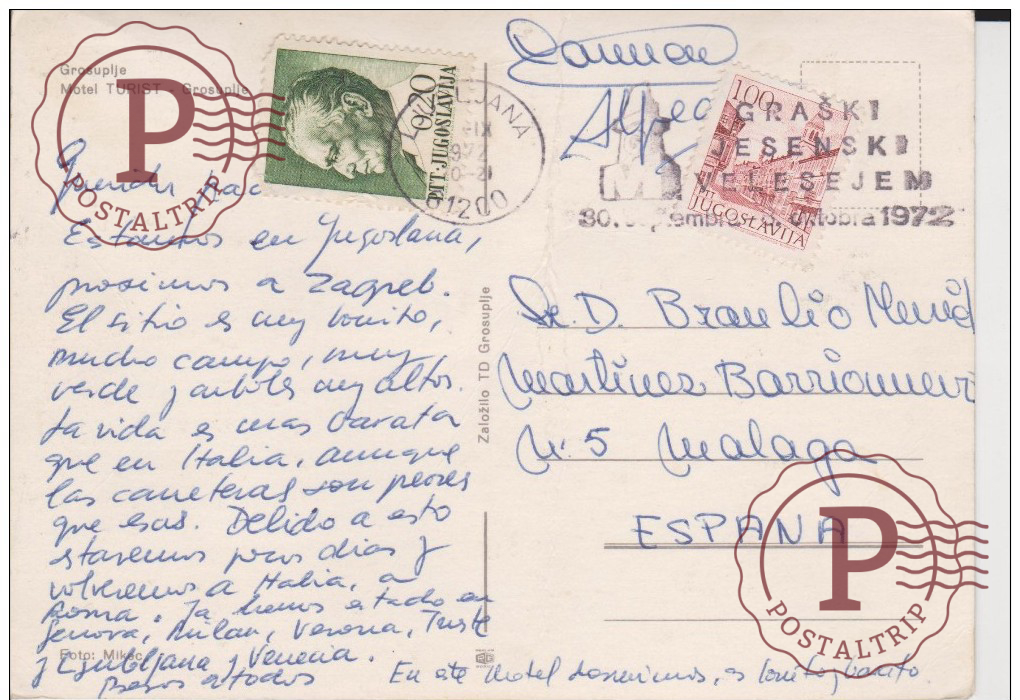 Grosuplje
Motel TURIST - Grosuplje
Estamos en Yugoslavia,
proximos a Zagreb.
El sitio es muy bonito,
mucho campo, muy
verde y arboles muy altos.
La vida es mas barata
que en Italia, aunque
las carreteras son peores
que esas. Debido a esto
estaremos pocos dias y
volveremos a Italia, a
Roma. Ya hemos estado en
Genova, Milan, Verona, Trieste
y Ljubljana y Venecia.
Besos a todos
En este Motel dormimos, es bonito y barato.
Foto: Mikec
Založilo TD Grosuplje
0,20
PTT·JUGOSLAVIJA
LJANA
IX
1200
1.00
JUGOSLAVIJA
GRAŠKI
JESENSKI
VELESEJEM
30. oktobra 1972
Sr. D. Braulio
Martinez Barrionuevo
N. 5 Malaga
ESPAÑA
P
POSTALTRIP
P
POSTALTRIP